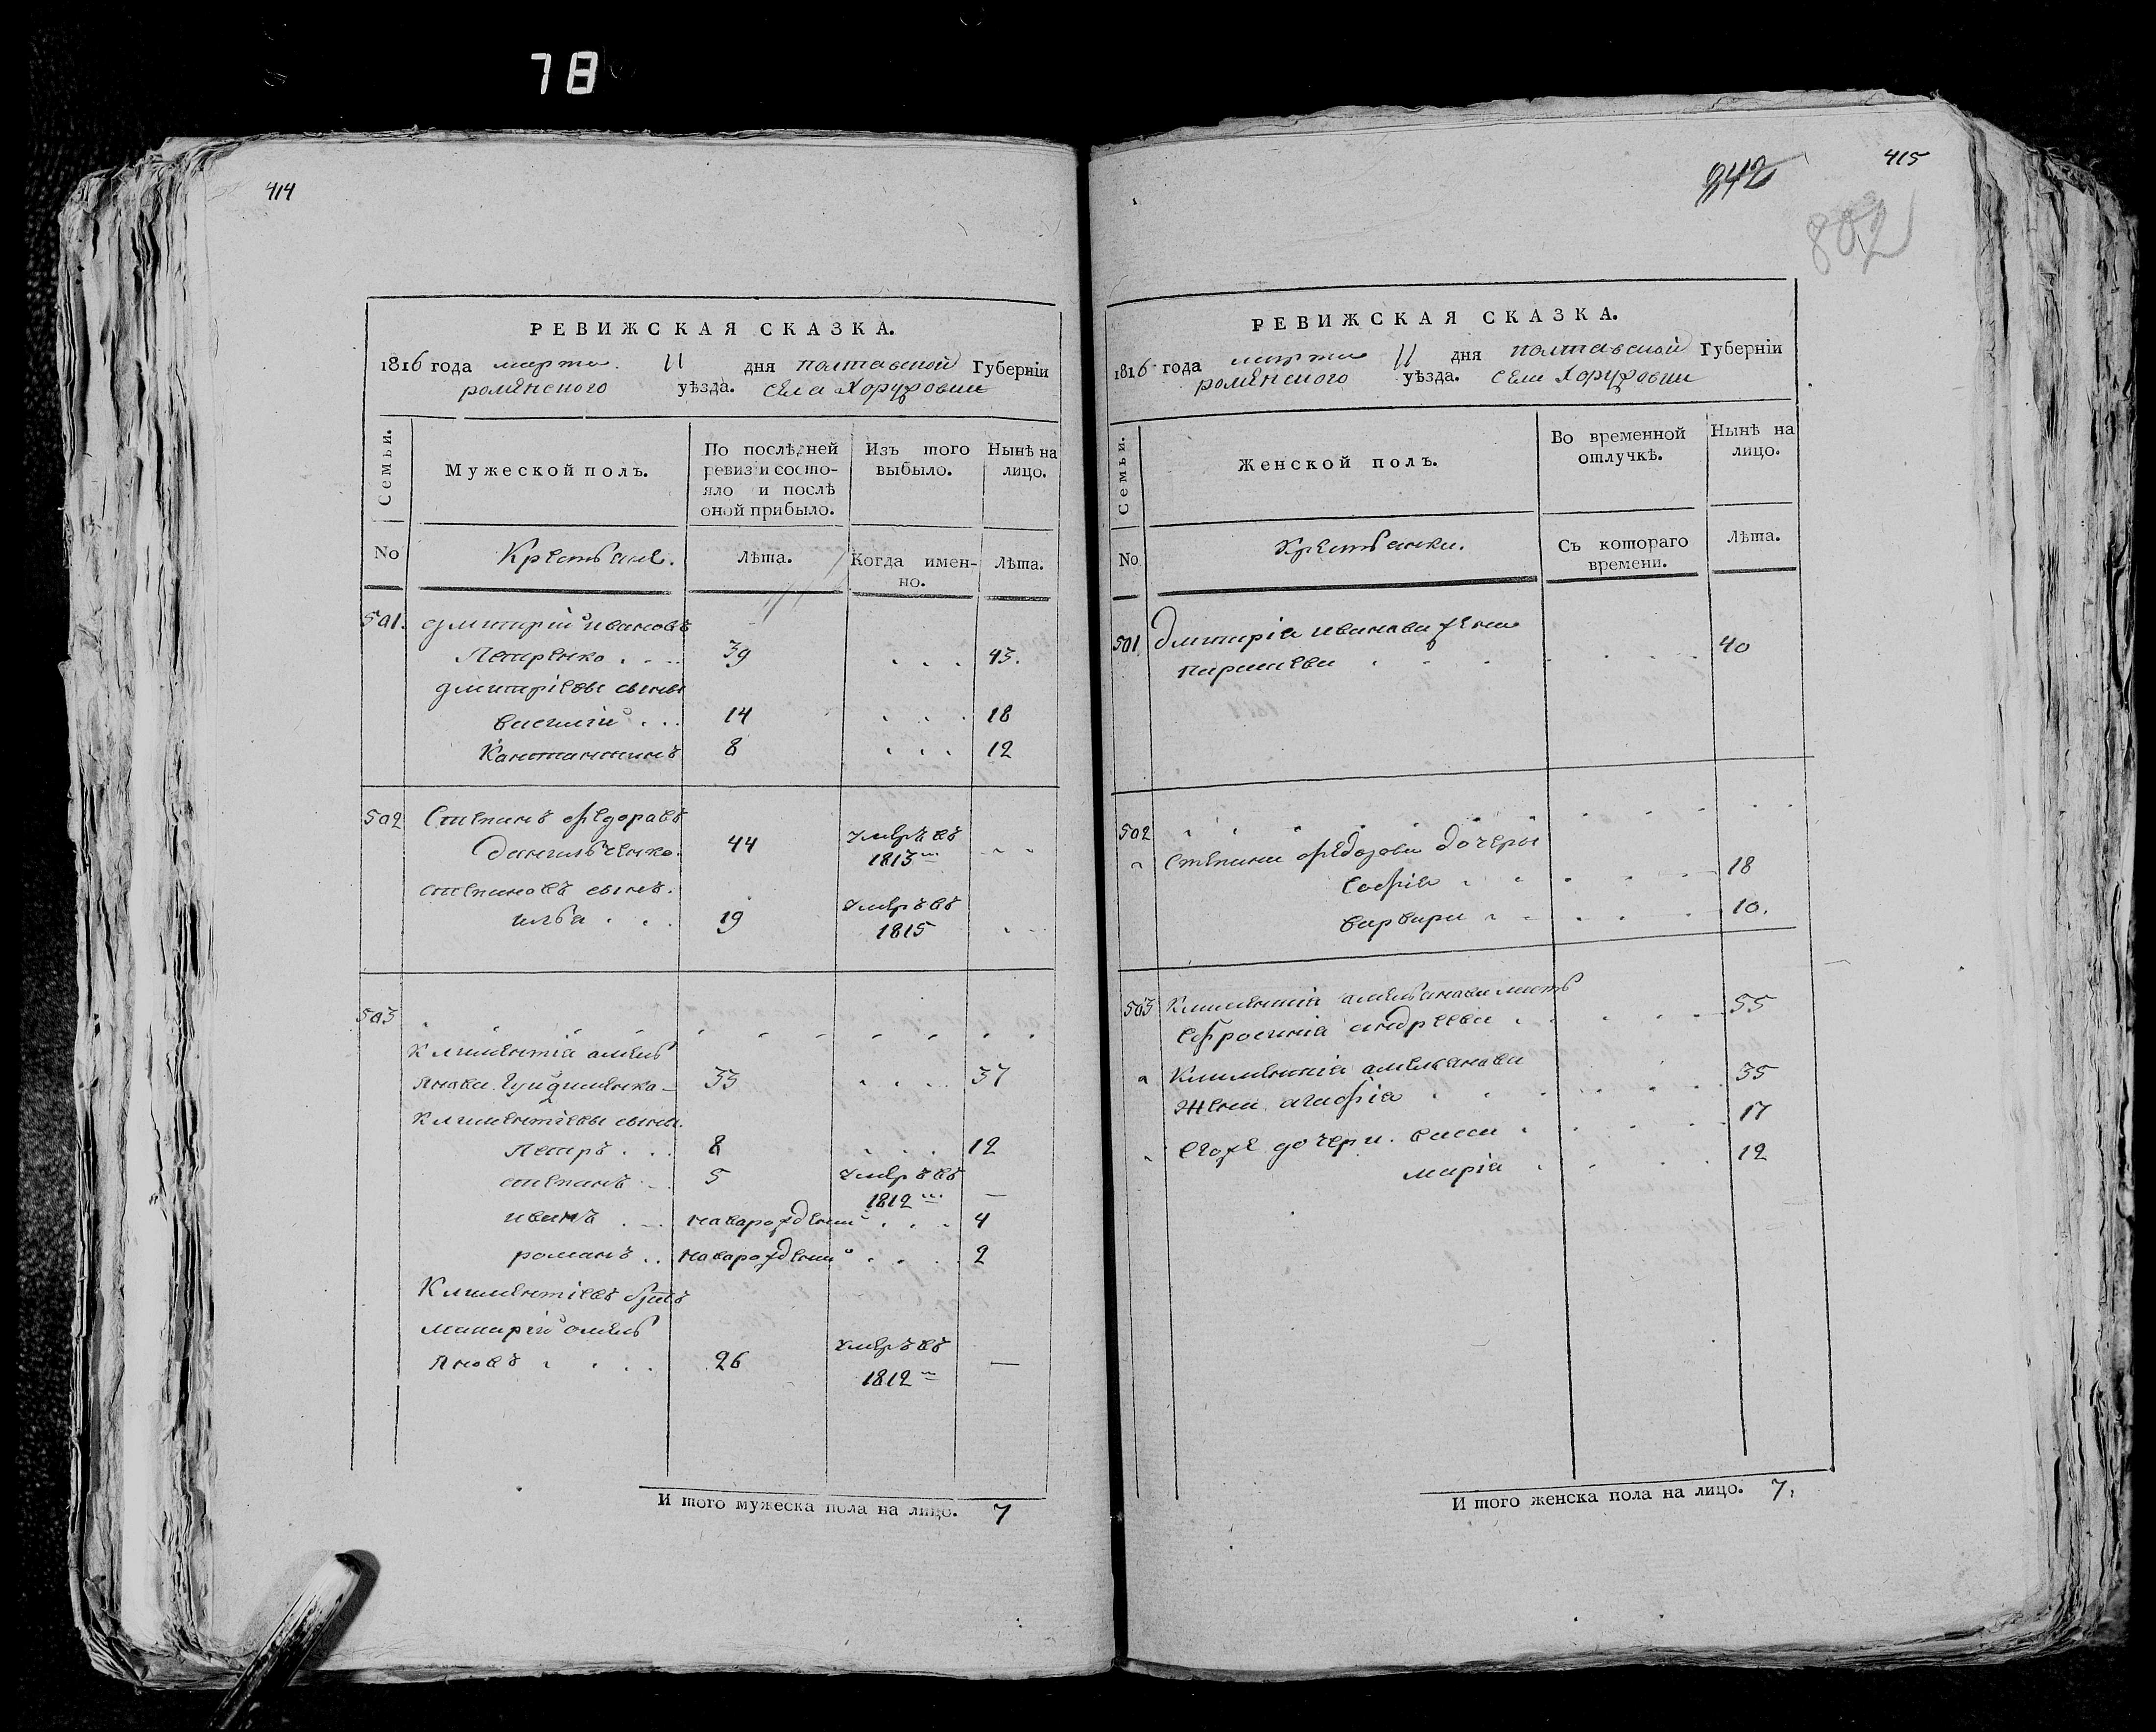 78
414
РЕВИЖСКАЯ СКАЗКА.
1816 года марта 11 дня полтавской Губерніи
роменского уѣзда. села Хоружовки
Семьи.
Мужеской полъ.
По послѣдней ревизіи состояло и послѣ оной прибыло.
Изъ того выбыло.
Нынѣ на лицо.
No
Крестьяне.
Лѣта.
Когда именно.
Лѣта.
501. дмитрій ивановъ
Петренко 39 43.
дмитріевы сыны
василій 14 18
Канстантинъ 8 12
502 Степанъ федоравъ
Данильченко. 44 умеръ въ 1813м
степановъ сынъ.
илья 19 умеръ въ 1815
503
Климентія амель
янова 33 37
Климентіевы сыны.
Петръ 8 12
степанъ 5 умеръ въ 1812м —
иванъ наварожденій 4
романъ наварожденій 2
Климентіевъ братъ
макарій омель
яновъ 26 умеръ въ 1812м —
И того мужеска пола на лицо. 7
415
242
802
РЕВИЖСКАЯ СКАЗКА.
1816 года марта 11 дня полтавской Губерніи
роменского уѣзда. села Хоружовки
Семьи.
Женской полъ.
Во временной отлучкѣ.
Нынѣ на лицо.
No
Крестьянки.
Съ котораго времени.
Лѣта.
501 Дмитрія иванова жена
параскева 40
502
степана федорова дочеры
Софія 18
варвара 10.
503 Климентія амельянова мать
Ефросинія андреева 55
Климентія амельянова
жена агафія 35
Егоже дочери. васса 17
марія 12
И того женска пола на лицо. 7.